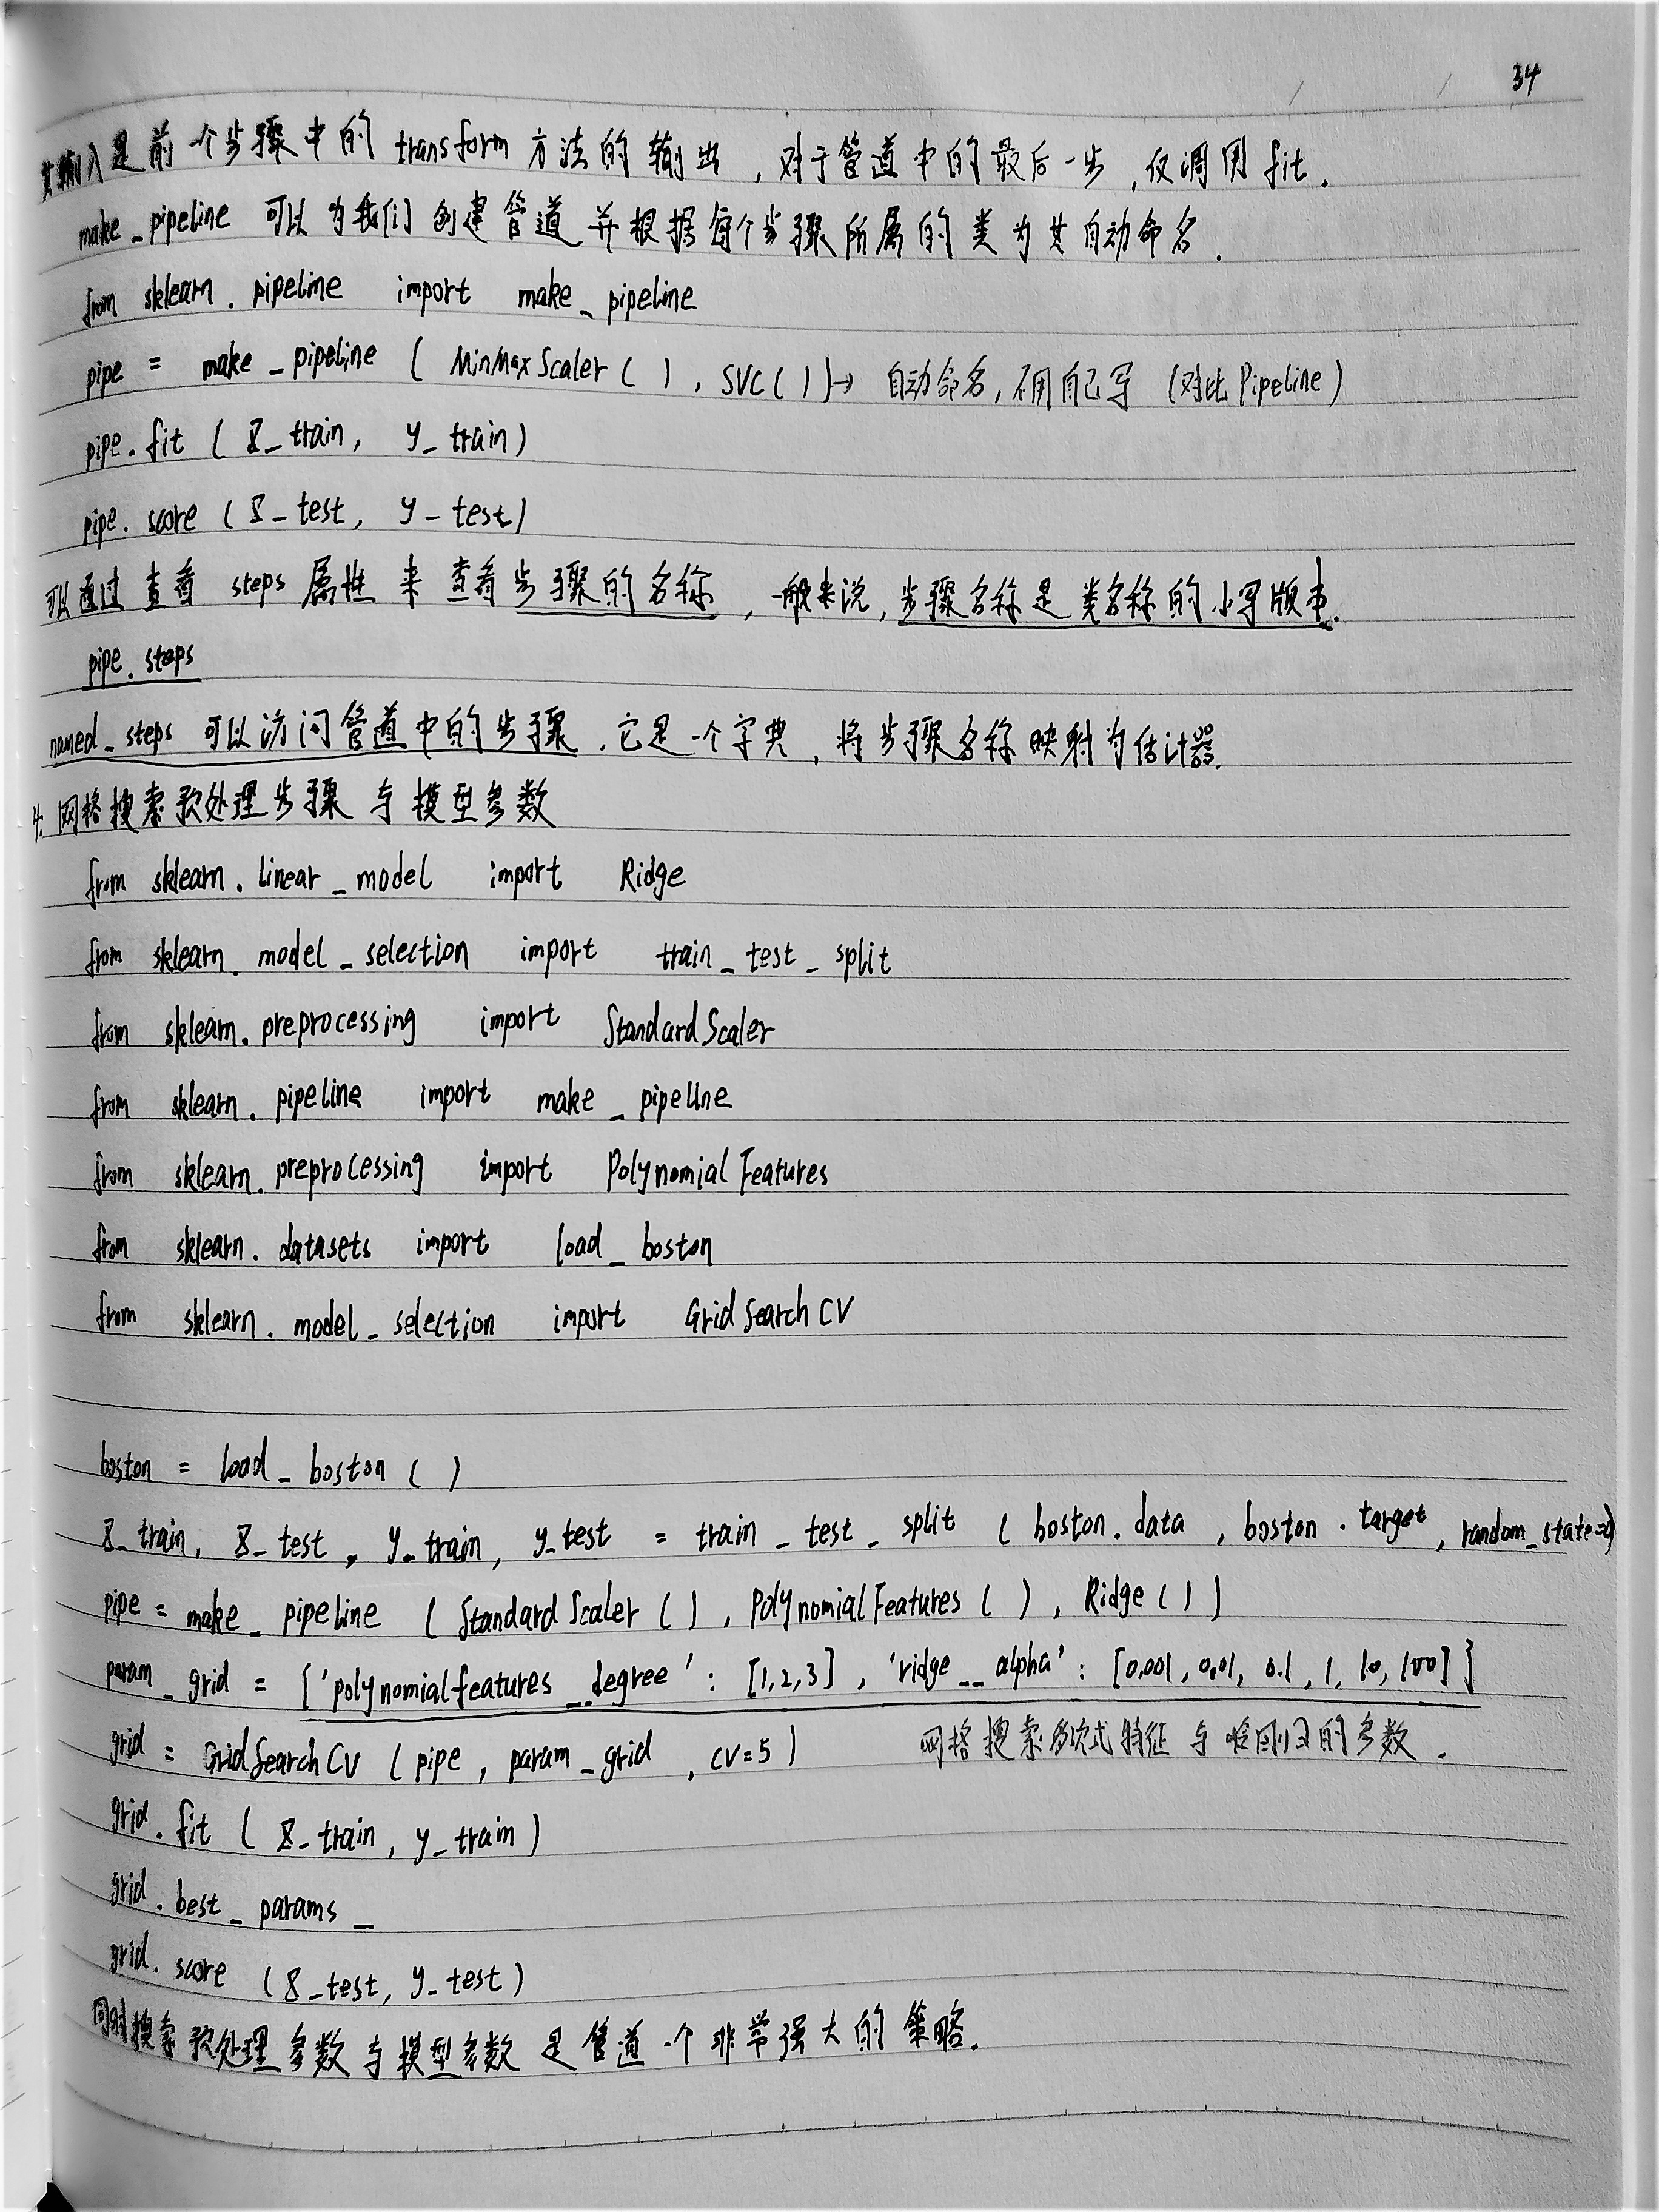 34
其输入是前一个步骤中的 transform 方法的输出，对于管道中的最后一步，仅调用 fit.
make_pipeline 可以为我们创建管道并根据每个步骤所属的类为其自动命名.
from sklearn.pipeline import make_pipeline
pipe = make_pipeline ( MinMaxScaler ( ) , SVC ( ) ) → 自动命名, 不用自己写 (对比 Pipeline)
pipe.fit ( X_train, y_train)
pipe.score ( X_test, y_test)
可以通过查看 steps 属性来查看步骤的名称，一般来说，步骤名称是类名称的小写版本.
pipe.steps
named_steps 可以访问管道中的步骤. 它是一个字典，将步骤名称映射为估计器.
4. 网格搜索预处理步骤与模型参数
from sklearn.linear_model import Ridge
from sklearn.model_selection import train_test_split
from sklearn.preprocessing import StandardScaler
from sklearn.pipeline import make_pipeline
from sklearn.preprocessing import PolynomialFeatures
from sklearn.datasets import load_boston
from sklearn.model_selection import GridSearchCV
boston = load_boston ( )
X_train, X_test, y_train, y_test = train_test_split ( boston.data , boston.target, random_state=0)
pipe = make_pipeline ( StandardScaler ( ) , PolynomialFeatures ( ) , Ridge ( ) )
param_grid = {'polynomialfeatures__degree' : [1,2,3] , 'ridge__alpha' : [0.001, 0.01, 0.1, 1, 10, 100] }
grid = GridSearchCV ( pipe , param_grid , cv=5 ) 网格搜索多项式特征与岭回归的参数.
grid.fit ( X_train, y_train )
grid.best_params_
grid.score ( X_test, y_test )
同时搜索预处理参数与模型参数是管道一个非常强大的策略.